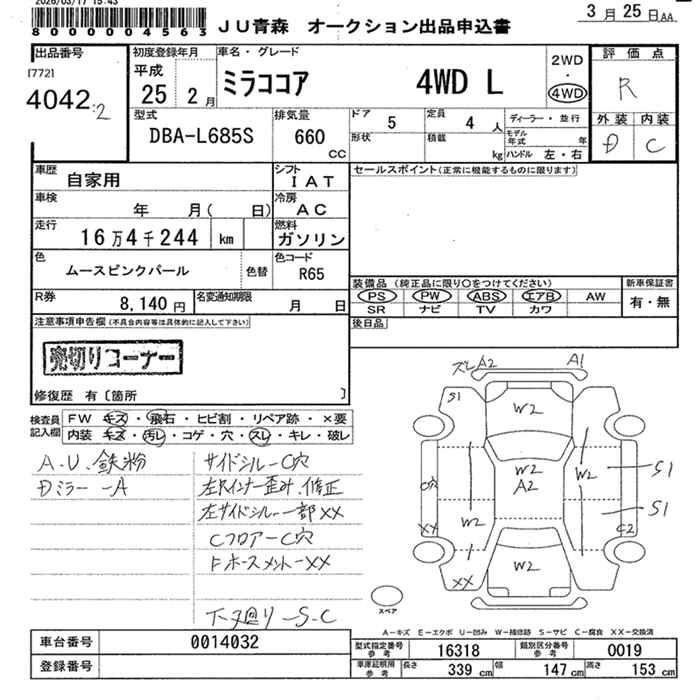 2026/03/17 15:43
8 0 0 0 0 0 4 5 6 3
JU青森 オークション出品申込書
3月25日AA
出品番号
[772]
4042:2
初度登録年月
平成
25 2月
車名・グレード
ミラココア 4WD L
2WD
・
4WD
評価点
R
型式
DBA-L685S
排気量
660
CC
ドア
5
形状
定員
4人
積載
kg
ディーラー・並行
モデル年式 年
ハンドル 左・右
外装 内装
D C
車歴
自家用
シフト
IAT
セールスポイント(正常に機能するものに限ります)
車検
年 月( 日)
冷房
AC
走行
16万4千244 km
燃料
ガソリン
色
ムースピンクパール
色替
色コード
R65
装備品 (純正品に限り〇をつけてください)
PS PW ABS エアB AW
SR ナビ TV カワ
新車保証書
有・無
R券
8,140円
名変通知期限
月 日
後日品
注意事項申告欄(不具合内容等は具体的に記入して下さい)
売切りコーナー
修復歴 有〔箇所 〕
検査員記入欄
FW キズ・飛石・ヒビ割・リペア跡・×要
内装 キズ・汚レ・コゲ・穴・スレ・キレ・破レ
A.U.鉄粉
Dミラー -A
サイドシルーC穴
左Rインナー歪み.修正
左サイドシルー一部XX
CフロアーC穴
FホースメントーXX
下廻り-S-C
ズレA2 A1
S1
W2
W2
A2
W2
S1
S1
C穴
W2
XX
C2
W2
XX
スペア
A-キズ E-エクボ U-凹み W-補修跡 S-サビ C-腐食 XX-交換済
車台番号
0014032
登録番号
型式指定番号
参考
16318
類別区分番号
参考
0019
車庫証明用
参考
長さ
339 cm
幅
147 cm
高さ
153 cm